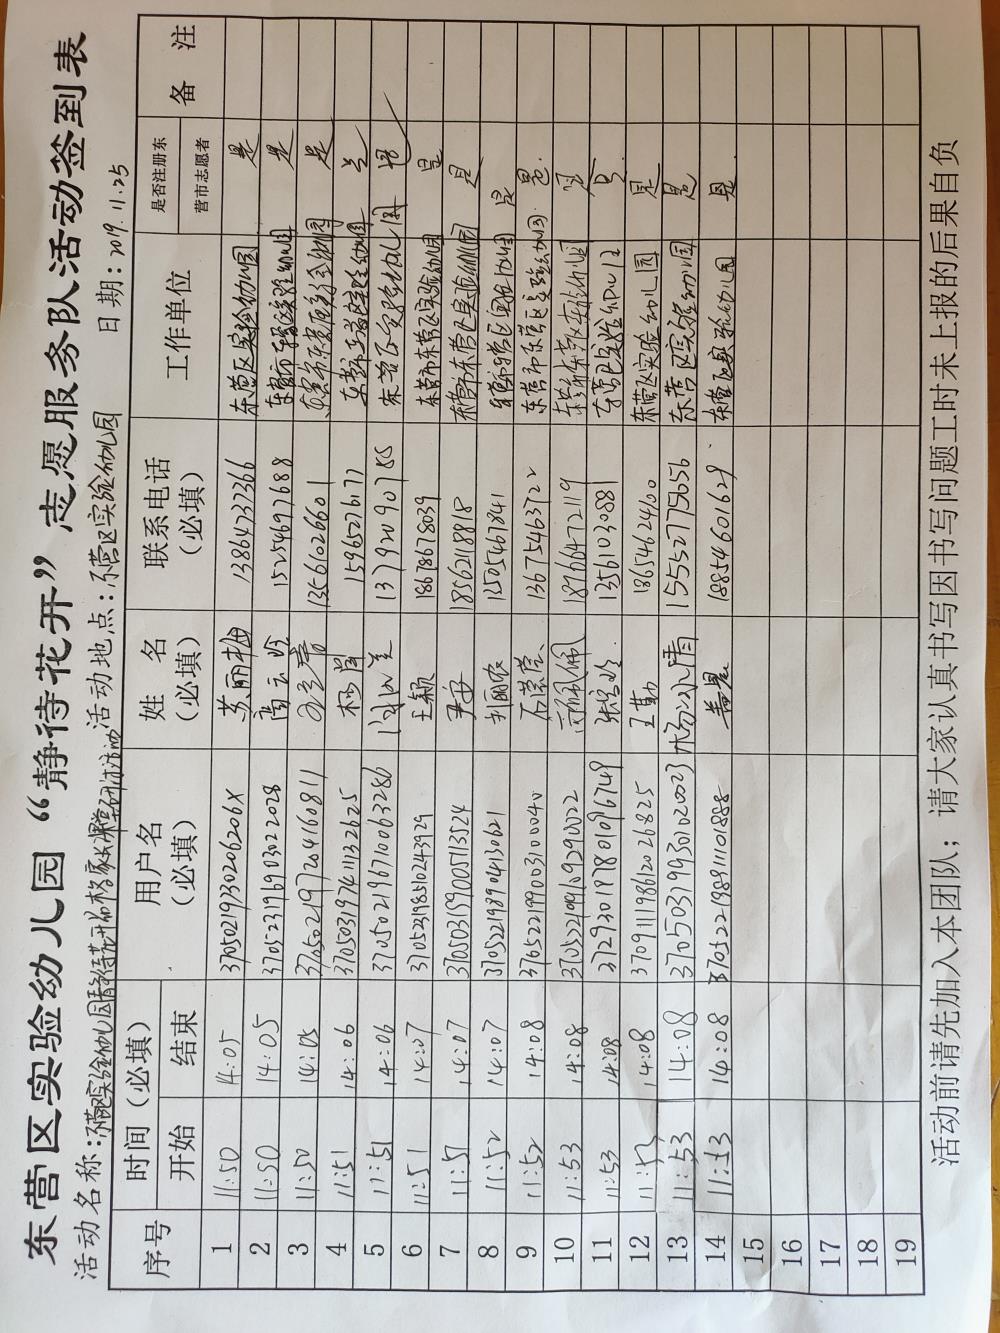 东营区实验幼儿园“静待花开”志愿服务队活动签到表
活动地点：东营区实验幼儿园 日期：2019.11.25
序号 时间（必填） 用户名（必填） 姓名（必填） 联系电话（必填） 工作单位 是否注册东营市志愿者 备注
开始 结束
1 11:50 14:05 37050219730206206X 苏丽梅 13864737366 东营区实验幼儿园 是
2 11:50 14:05 370523196903022028 15254697688 东营市东营区实验幼儿园 是
3 11:50 14:05 370502197204160811 13561026601 是
4 11:51 14:06 370503197411132625 15965276177 东营市东营区实验幼儿园 是
5 11:51 14:06 370502196710063286 东营区实验幼儿园 是
6 11:51 14:07 370523198510243929 王颖 18678678039 东营市东营区实验幼儿园 是
7 11:51 14:07 370503199005113524 18562118818 东营市东营区实验幼儿园 是
8 11:52 14:07 370522198904130621 1505467841 东营市东营区实验幼儿园 是
9 11:52 14:08 370522199003100040 13675463722 东营市东营区实验幼儿园 是
10 11:53 14:08 18766472119 东营市东营区实验幼儿园 是
11 11:53 14:08 372930197801096749 13561030881 东营区实验幼儿园 是
12 11:53 14:08 370911198612026825 18654624100 东营区实验幼儿园 是
13 11:53 14:08 370503199301020023 15552775656 东营区实验幼儿园 是
14 11:53 14:08 370522198911101888 姜曼 18854601629 东营区实验幼儿园 是
15
16
17
18
19
活动前请先加入本团队；请大家认真书写因书写问题工时未上报的后果自负